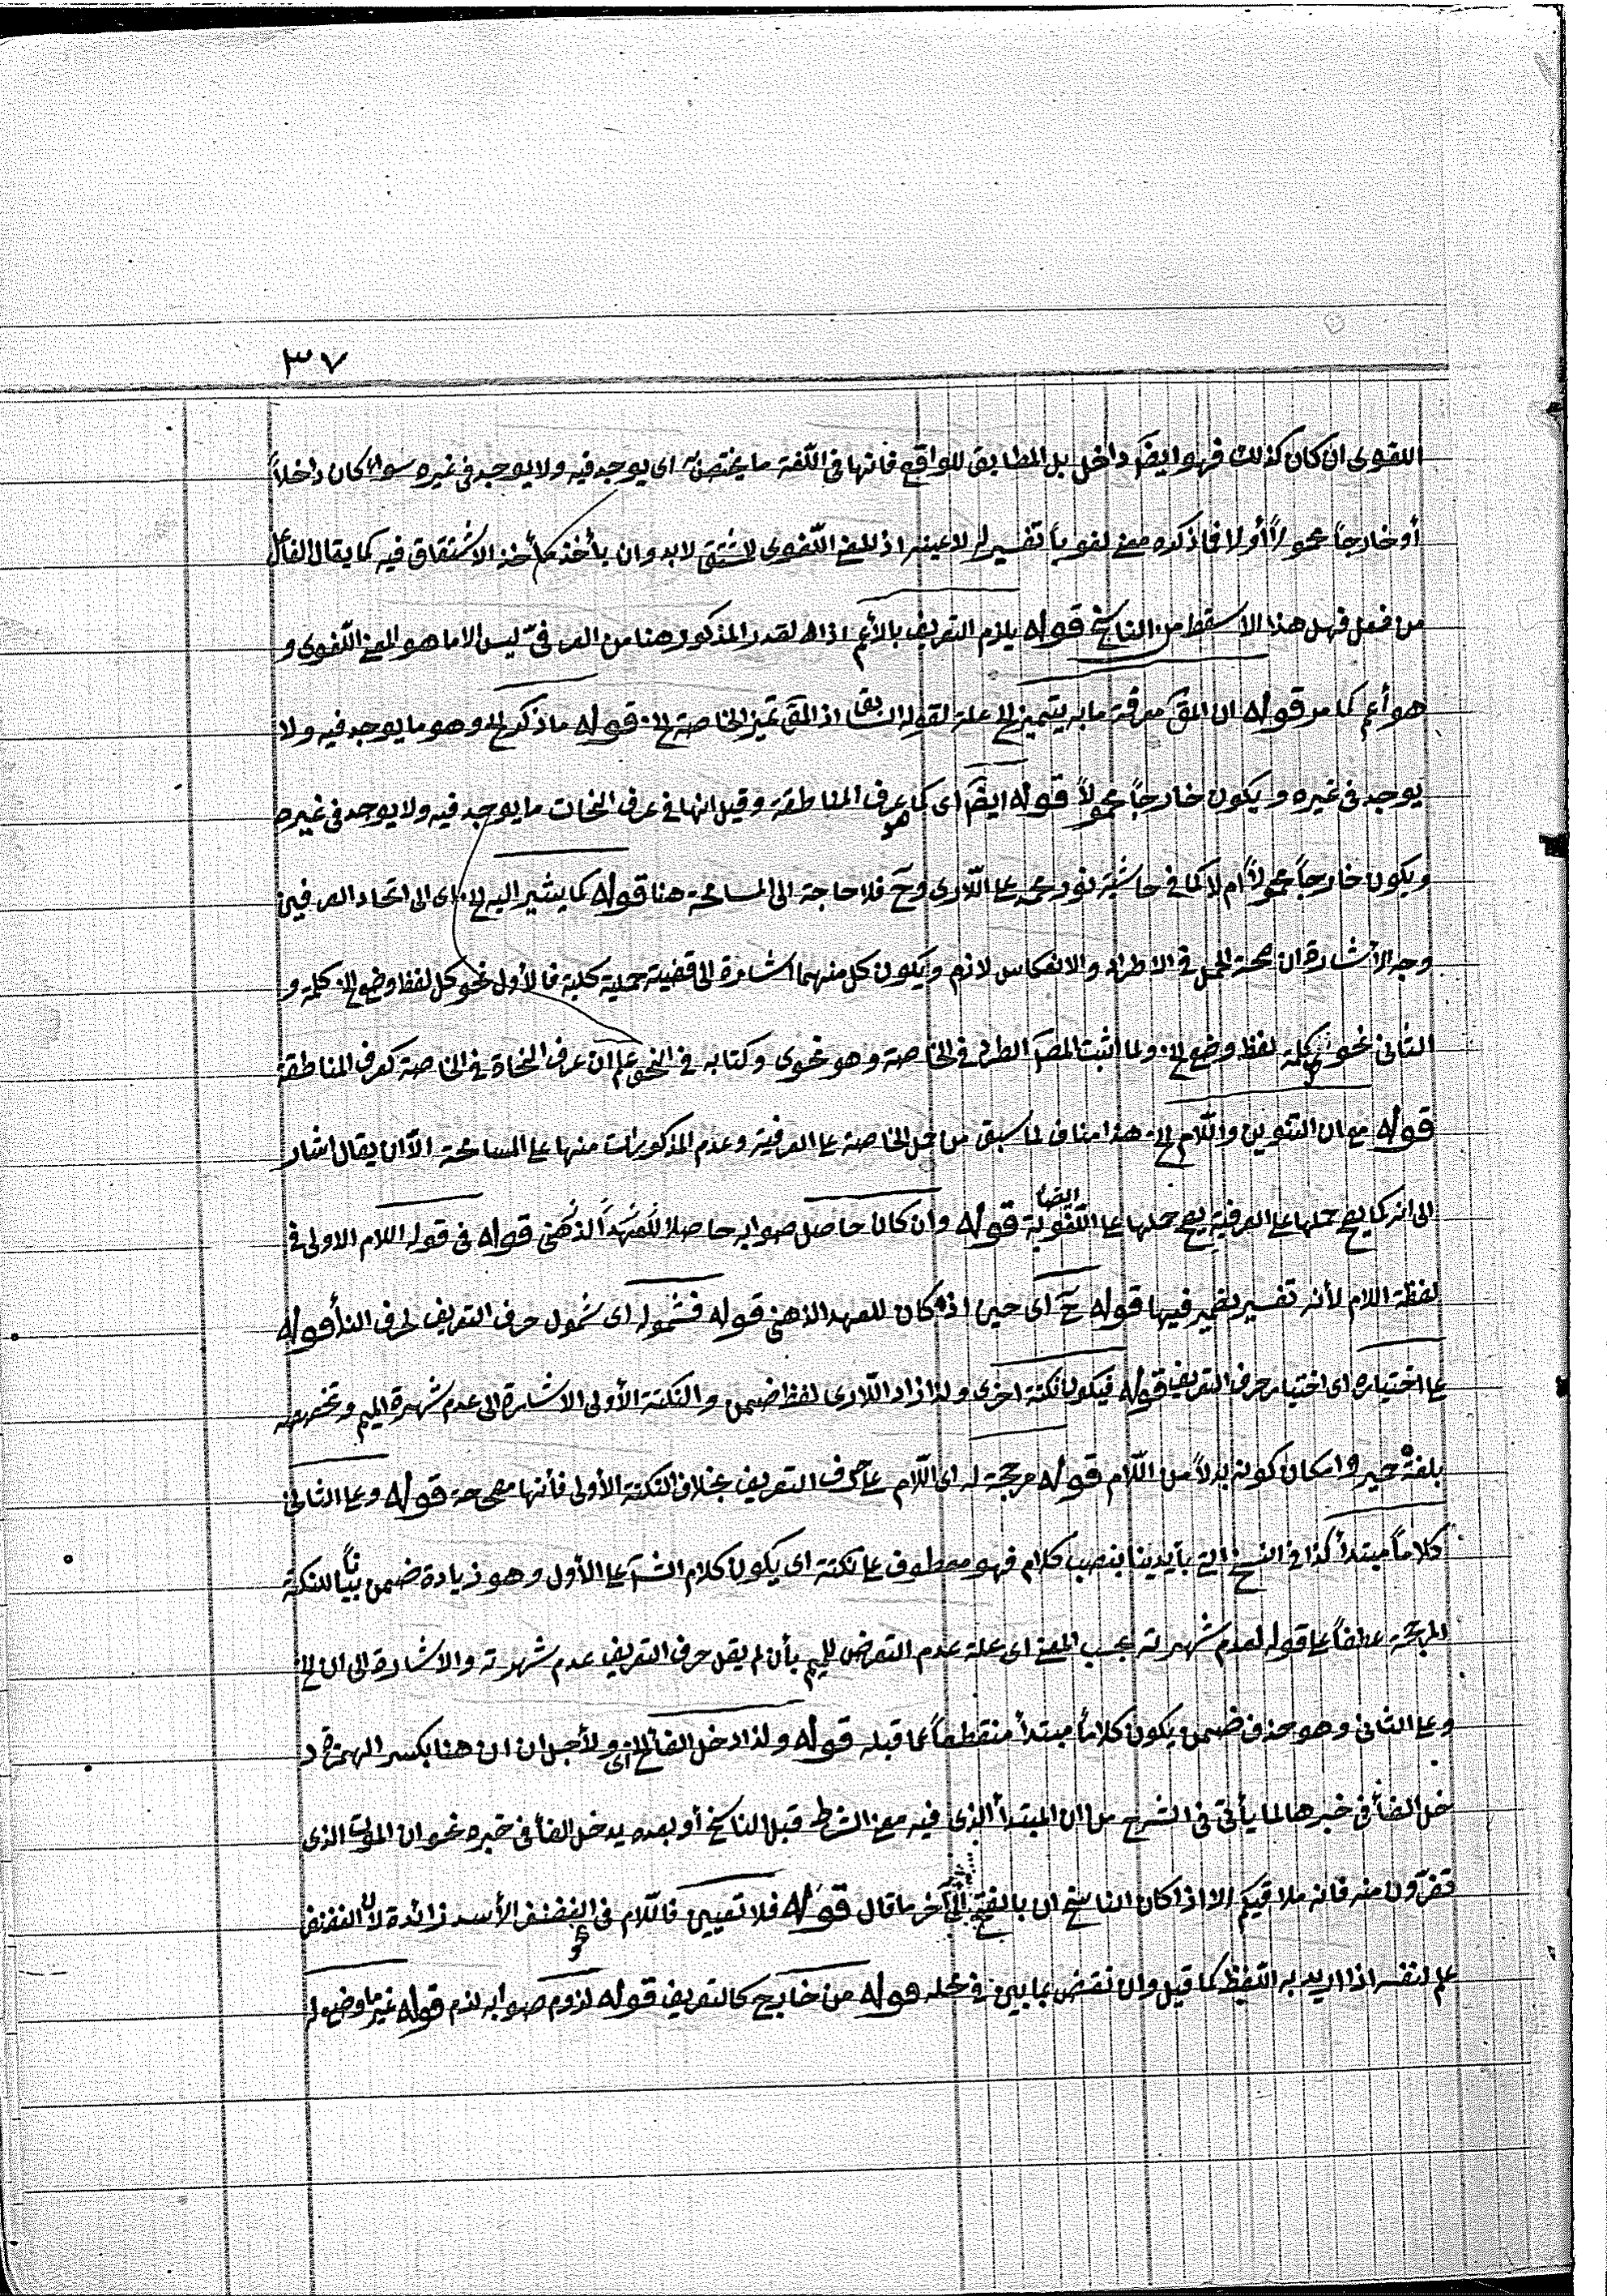 ٣٧
اللغوى ان كان كذلك فهو ايضً داخل بل المطابق للواقع فانها فى اللّغة ما يختصّ به اى يوجد فيه ولا يوجد فى غيره سواء كان داخلاً
أو خارجاً محمولاً أو لا فما ذكره معنى لغوياً تفسير له لا عينه اذ المعنى اللّغوى لمشتق لابد وان يأخذ مأخذ الاشتقاق فيه كما يقال الفاعل
من فعل فهل هذا الا سقط من الناسخ قوله يلزم التعريف بالأعم اذ القدر المذكور هنا من العرفىّ ليس الا ما هو المعنى اللّغوى و
هو أعم كما مر قوله ان المق معرفة ما به يتميز الخ علة لقوله السابق اذ المق تميز الخاصة الخ قوله ما ذكر الخ وهو ما يوجد فيه ولا
يوجد فى غيره ويكون خارجاً محمولاً قوله ايضً اى كما هو عرف المناطقة وقيل انها فى عرف النحات ما يوجد فيه ولا يوجد فى غيره
ويكون خارجاً محمولاً ام لا كما فى حاشية نور محمد على اللّارى وحَ فلا حاجة الى المسامحة هنا قوله كما يشير اليه الخ اى الى اتحاد العرفين
وجه الاشارة ان صحة الحمل فى الاطراد والانعكاس لازم ويكون كل منهما اشارة الى قضية حملية كلية فالأول نحو كل لفظ وضع الخ كلمة و
الثانى نحو كل كلمة لفظ وضع الخ ولما اثبت المصَ الطرد فى الخاصة وهو نحوى وكتابه فى النحو علم ان عرف النحاة فى الخاصة كعرف المناطقة
قوله مع ان التنوين واللّام الخ هذا مناف لما سبق من حمل الخاصة على العرفية وعدم المذكورات منها على المسامحة الّا ان يقال اشار
الى انه كما يصح حملها على العرفية يصح حملها على اللّغوية ايضاً قوله وان كانا حاصل صوابه حاصلا للعهد الذهنى قوله فى قوله اللام الاولى فى
لفظة اللام لأنه تفسير لضمير فيها قوله حَ اى حين اذ كان للعهد الذهنى قوله فشموله اى شمول حرف التعريف لحرف الندأ قوله
على اختياره اى اختيار حرف التعريف قوله فيكون نكتة اخرى ولذا زاد اللّارى لفظ ضمن والنكتة الأولى الاشارة الى عدم شهرة الميم وتخصيصه
بلغة حمير وامكان كونه بدلاً من اللّام قوله مرجحة له اى اللّام على حرف التعريف بخلاف النكتة الأولى فأنها مصححة قوله وعلى الثانى
كلاماً مبتدأ كذا فى النسخ التى بأيدينا بنصب كلام فهو معطوف على نكتة اى يكون كلام الشَ على الأول وهو زيادة ضمن بياناً للنكتة
المرجحة عطفاً على قوله لعدم شهرته بحسب المعنى اى علة عدم التعرض للميم بأن لم يقل حرف التعريف عدم شهرته والاشارة الى ان الخ
وعلى الثانى وهو حذف ضمن يكون كلاماً مبتدأ منقطعاً عما قبله قوله ولذا دخل الفأ الخ اى ولأجل ان ان هنا بكسر الهمزة د
خل الفأ فى خبرها لما يأتى فى الشرح من ان المبتدأ الذى فيه معنى الشرط قبل الناسخ أو بعده يدخل الفأ فى خبره نحو ان الموت الذى
تفرّون منه فانه ملاقيكم الا اذا كان الناسخ ان بالفتح الى آخر ما قال قوله فلا تعيين فاللّام فى نحو الغضنفر الأسد زائدة لأن الغضنفر
علم لنفسه اذا اريد به اللّفظ كما قيل وان نقض بما بين فى محله قوله من خارج كالتعريف قوله لزوم صوابه لذم قوله غير ما وضع له